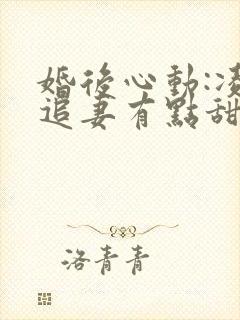 婚後心動:凌
追妻有點甜
洛青青